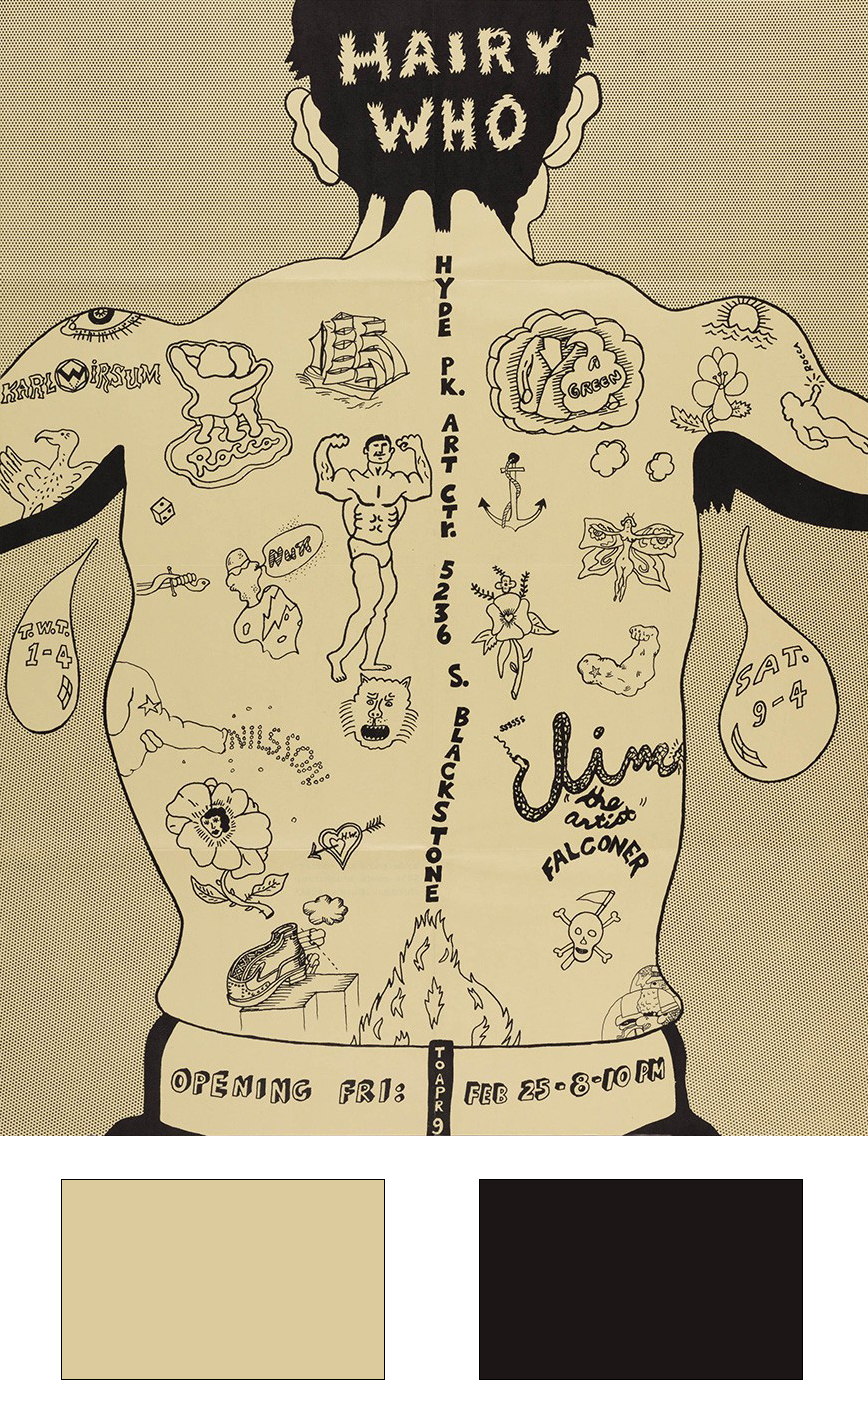 HAIRY
WHO
HYDE PK. ART CTr. 5236 S. BLACKSTONE
KARL WiRSUM
Rocca
A
GREEN
ROCCA
Nutt
T.W.T.
1-4
SAT.
9-4
NILSSON
ssssss
Jim
"the
artist"
FALCONER
H.W.
OPENING FRI: FEB 25-8-10 PM
To APR 9